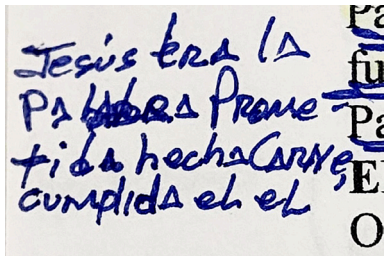 Jesús era la
Palabra Prome-
tida hecha Carne,
cumplida el el
Pa
fu
Pa
El
O